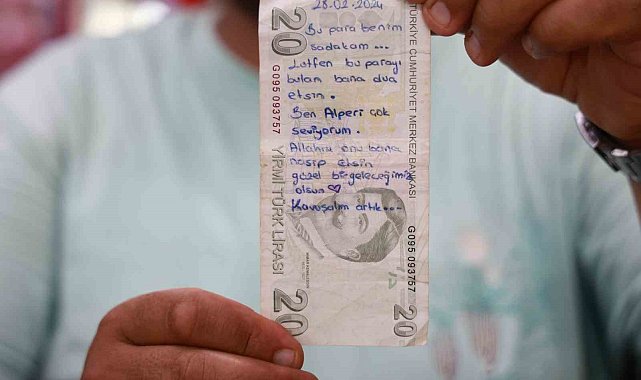 28.02.2024
Bu para benim
sadakam...
Lütfen bu parayı
bulan bana dua
etsin.
Ben Alperi çok
seviyorum.
Allahım onu bana
nasip etsin
güzel bir geleceğimiz
olsun♡
Kavuşalım artık...
20
G095 093757
YİRMİ TÜRK LİRASI
20
TÜRKİYE CUMHURİYET MERKEZ BANKASI
G095 093757
20